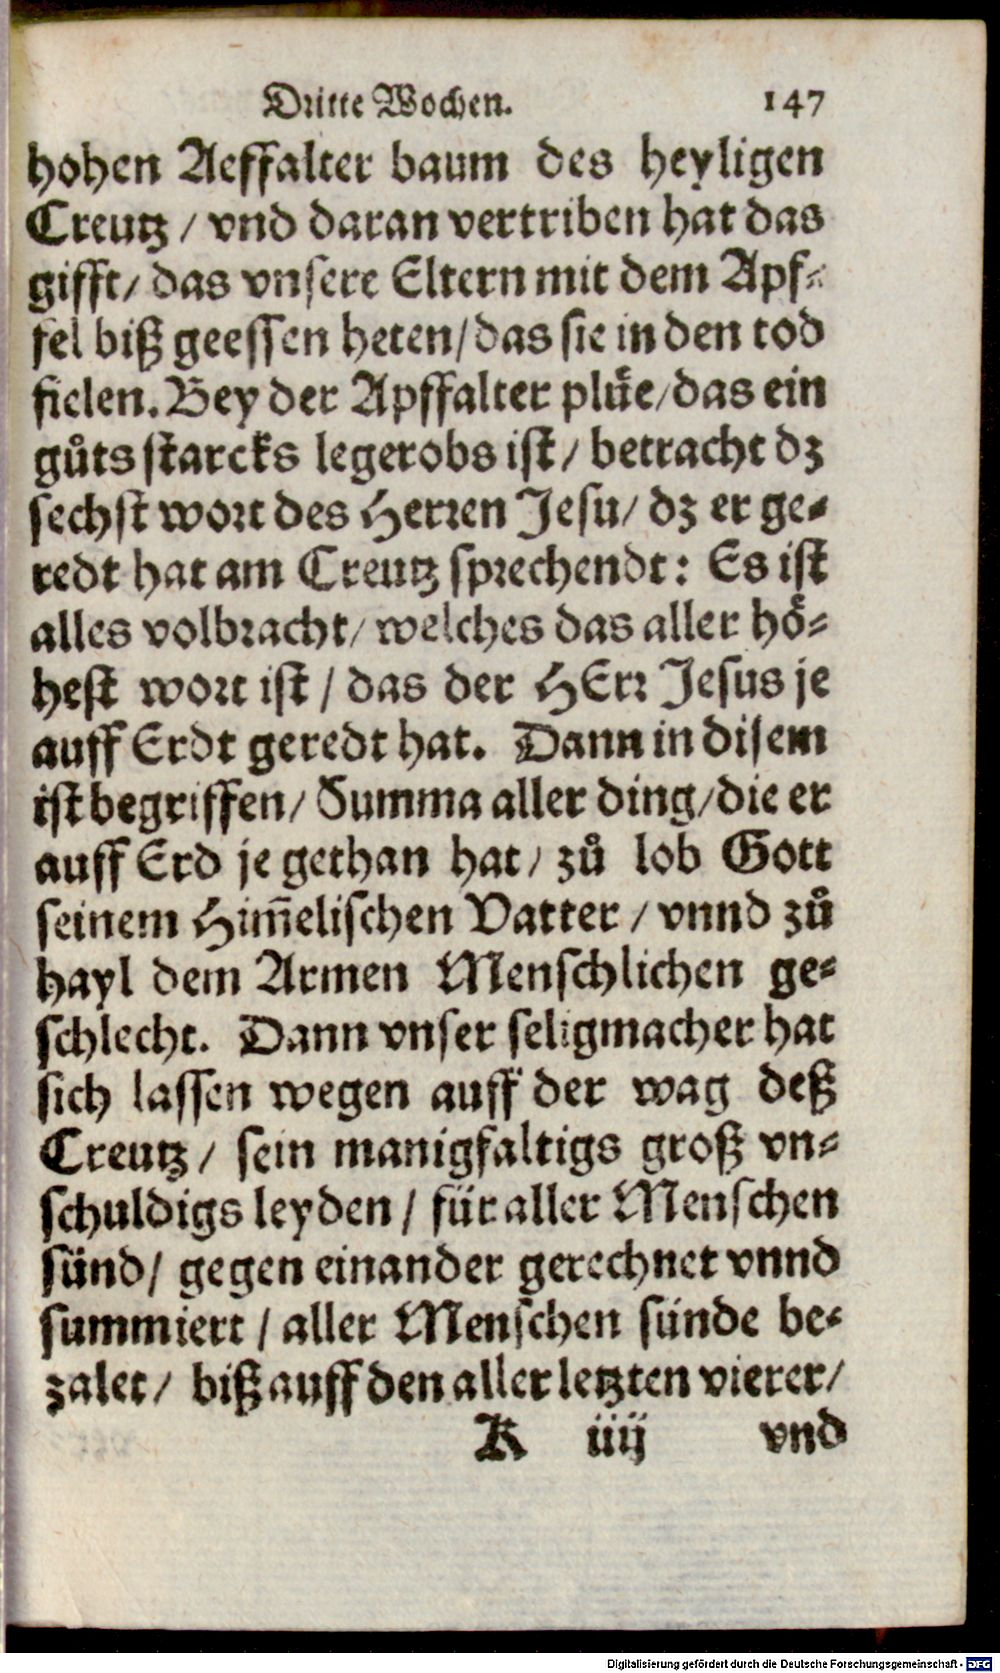 Dritte Wochen. 147
hohen Aeffalter baum des heyligen
Creutz / vnd daran vertriben hat das
gifft / das vnsere Eltern mit dem Apf-
fel biß geessen heten / das sie in den tod
fielen. Bey der Apffalter plüe / das ein
gůts starcks legerobs ist / betracht dz
sechst wort des Herren Jesu / dz er ge-
redt hat am Creutz sprechendt: Es ist
alles volbracht / welches das aller hö-
hest wort ist / das der HErr Jesus je
auff Erdt geredt hat. Dann in disem
ist begriffen / Summa aller ding / die er
auff Erd je gethan hat / zů lob Gott
seinem Him̃elischen Vatter / vnnd zů
hayl dem Armen Menschlichen ge-
schlecht. Dann vnser seligmacher hat
sich lassen wegen auff der wag deß
Creutz / sein manigfaltigs groß vn-
schuldigs leyden / für aller Menschen
sünd / gegen einander gerechnet vnnd
summiert / aller Menschen sünde be-
zalet / biß auff den aller letzten vierer /
K iiij vnd
Digitalisierung gefördert durch die Deutsche Forschungsgemeinschaft - DFG